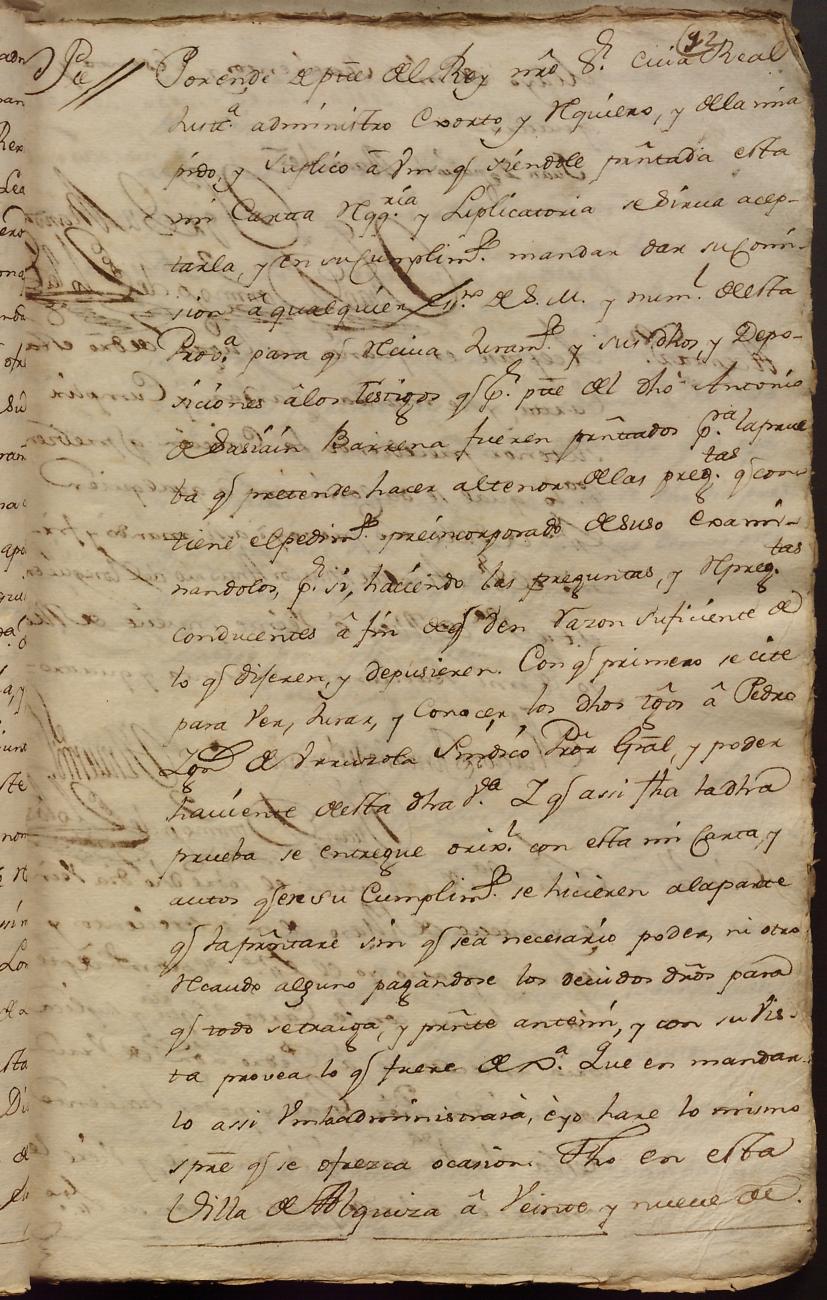 (12
Pie // Porende de pte del Rey nro Sr. cuia Real
Justa. administro Exorto, y Rquiero, y de la mia
pido, y suplico â Vm q siendole prntada esta
mi Carta Rqqria. y suplicatoria se sirva acep-
tarla, y en su Cumplimto. mandar dar su Comi-
sion â qualquier essno. de S. M. y numl. de esta
Prova. para q Rciva Juramto. y sus dhos, y Depo-
siciones â los testigos q pr. pte del dho Antonio
de Sasiain Barrena fueren prntados pa. la prue
ba q pretende hacer al tenor de las pregtas. q con-
tiene el pedimto. preincorporado de suso exami-
nandolos, pr. si, haciendo las preguntas, y Rpregtas
conducentes â fin de q den razon suficiente de
lo q dijeren, y depusieren. Con q primero se cite
para Ver, Jurar, y Conocer los dhos tgos â Pedro
Ygno de Urruzola Sindico Pror Gral, y poder
haviente de esta dha Va. Y q assi fha la dha
prueba se entregue orixl. con esta mi Carta, y
autos q en su Cumplimto. se hicieren a la parte
q la prntare sin q sea necesario poder, ni otro
Rcaudo alguno pagandose los devidos dros para
q todo se traiga, y prnte ante mi, y con su Vis-
ta provea lo q fuere de Jta. Que en mandar-
lo assi Vm administrarà, è yo hare lo mismo
spre q se ofrezca ocasion. Fho en esta
Villa de Albquiza â Veinte y nueve de.